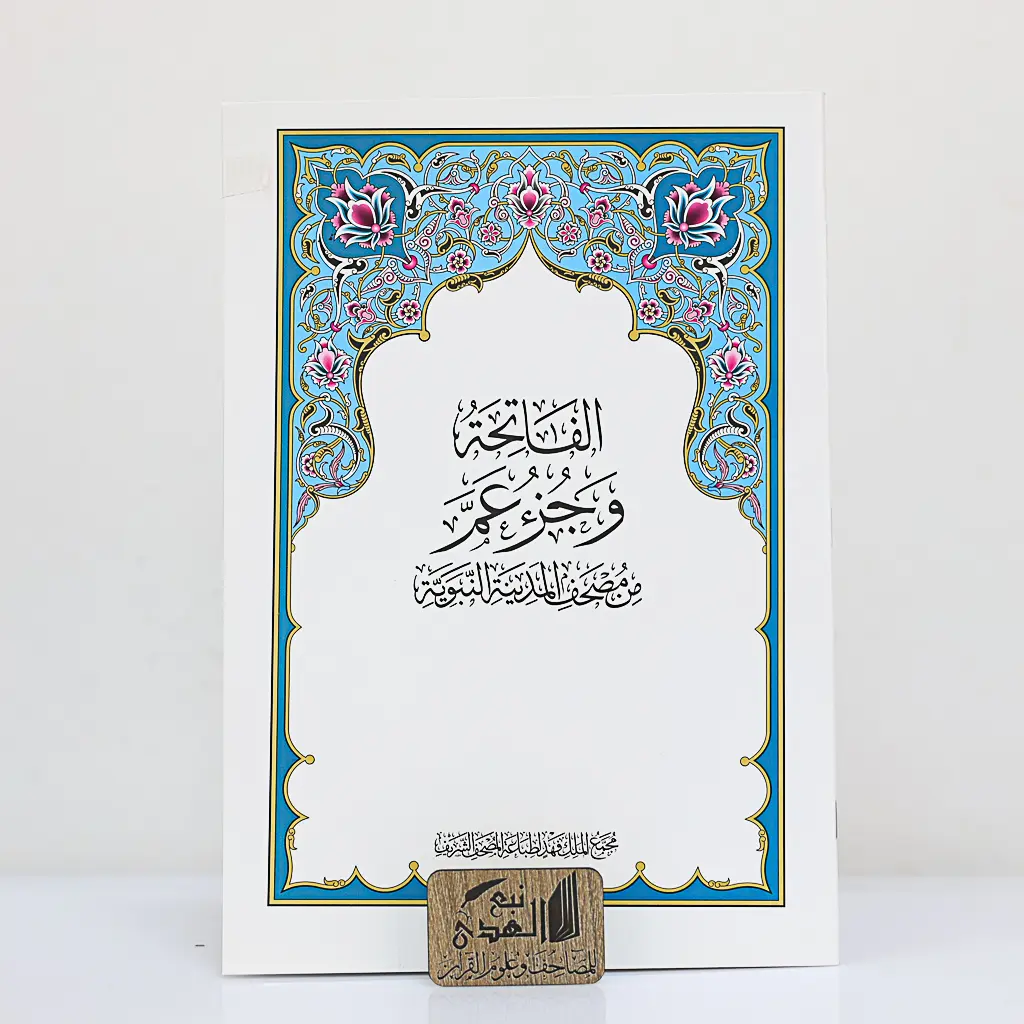 الفَاتِحَةُ
وَجُزْءُ عَمَّ
مِن مُصْحَفِ المَدِينَةِ النَّبَوِيَّةِ
مُجَمَّعُ المَلِك فَهْد لِطِبَاعَةِ المُصْحَفِ الشَّرِيفِ
نبع
الهدى
للمصاحف وعلوم القرآن